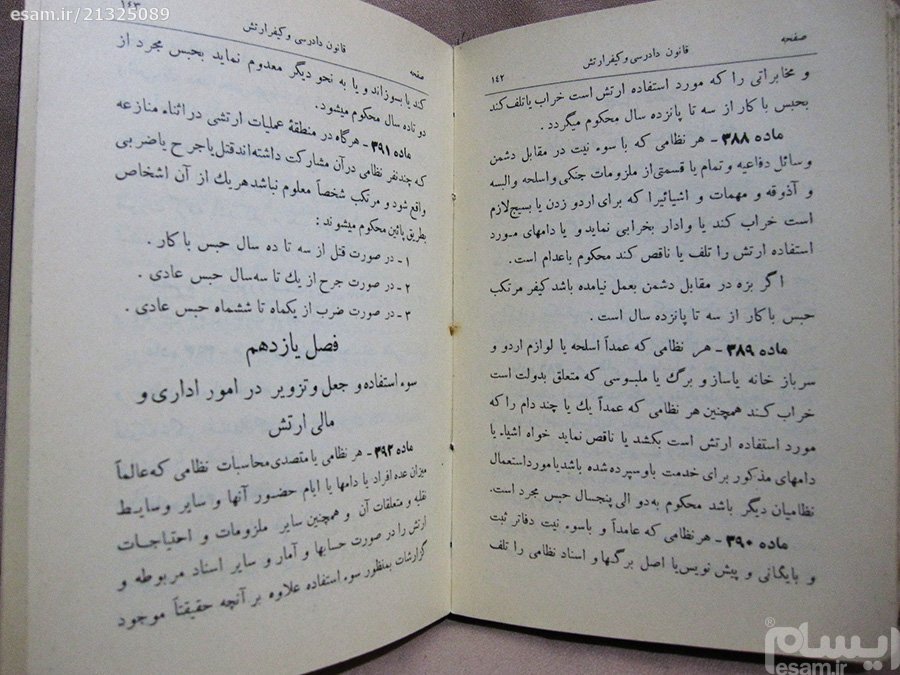 esam.ir/21325089
صفحه
قانون دادرسی و کیفر ارتش
۱۴۲
و مخابراتی را که مورد استفاده ارتش است خراب یا تلف کند
بحبس با کار از سه تا پانزده سال محکوم میگردد .
ماده ۳۸۸ - هر نظامی که با سوء نیت در مقابل دشمن
وسائل دفاعیه و تمام یا قسمتی از ملزومات جنگی و اسلحه و البسه
و آذوقه و مهمات و اشیائیرا که برای اردو زدن یا بسیج لازم
است خراب کند یا وادار بخرابی نماید و یا دامهای مورد
استفاده ارتش را تلف یا ناقص کند محکوم باعدام است .
اگر بزه در مقابل دشمن بعمل نیامده باشد کیفر مرتکب
حبس با کار از سه تا پانزده سال است .
ماده ۳۸۹ - هر نظامی که عمداً اسلحه یا لوازم اردو و
سرباز خانه یا ساز و برگ یا ملبوسی که متعلق بدولت است
خراب کند همچنین هر نظامی که عمداً یك یا چند دام را که
مورد استفاده ارتش است بکشد یا ناقص نماید خواه اشیاء یا
دامهای مذکور برای خدمت باو سپرده شده باشد یا مورد استعمال
نظامیان دیگر باشد محکوم به دو الی پنجسال حبس مجرد است .
ماده ۳۹۰ - هر نظامی که عامداً و باسوء نیت دفاتر ثبت
و بایگانی و پیش نویس یا اصل برگها و اسناد نظامی را تلف
صفحه
قانون دادرسی و کیفر ارتش
۱۴۳
کند یا بسوزاند و یا به نحو دیگر معدوم نماید بحبس مجرد از
دو تا ده سال محکوم میشود.
ماده ۳۹۱ - هر گاه در منطقهٔ عملیات ارتشی در اثناء منازعه
که چند نفر نظامی در آن مشارکت داشته اند قتل یا جرح یا ضربی
واقع شود و مرتکب شخصاً معلوم نباشد هر یك از آن اشخاص
بطریق پائین محکوم میشوند :
۱ - در صورت قتل از سه تا ده سال حبس با کار .
۲ - در صورت جرح از یك تا سه سال حبس عادی .
۳ - در صورت ضرب از یکماه تا ششماه حبس عادی .
فصل یازدهم
سوء استفاده و جعل و تزویر در امور اداری و
مالی ارتش
ماده ۳۹۲ - هر نظامی یا متصدی محاسبات نظامی که عالماً
میزان عده افراد یا دامها یا ایام حضور آنها و سایر وسایط
نقلیه و متعلقات آن و همچنین سایر ملزومات و احتیاجات
ارتش را در صورت حسابها و آمار و سایر اسناد مربوطه و
گزارشات بمنظور سوء استفاده علاوه بر آنچه حقیقتاً موجود
ایسام
esam.ir